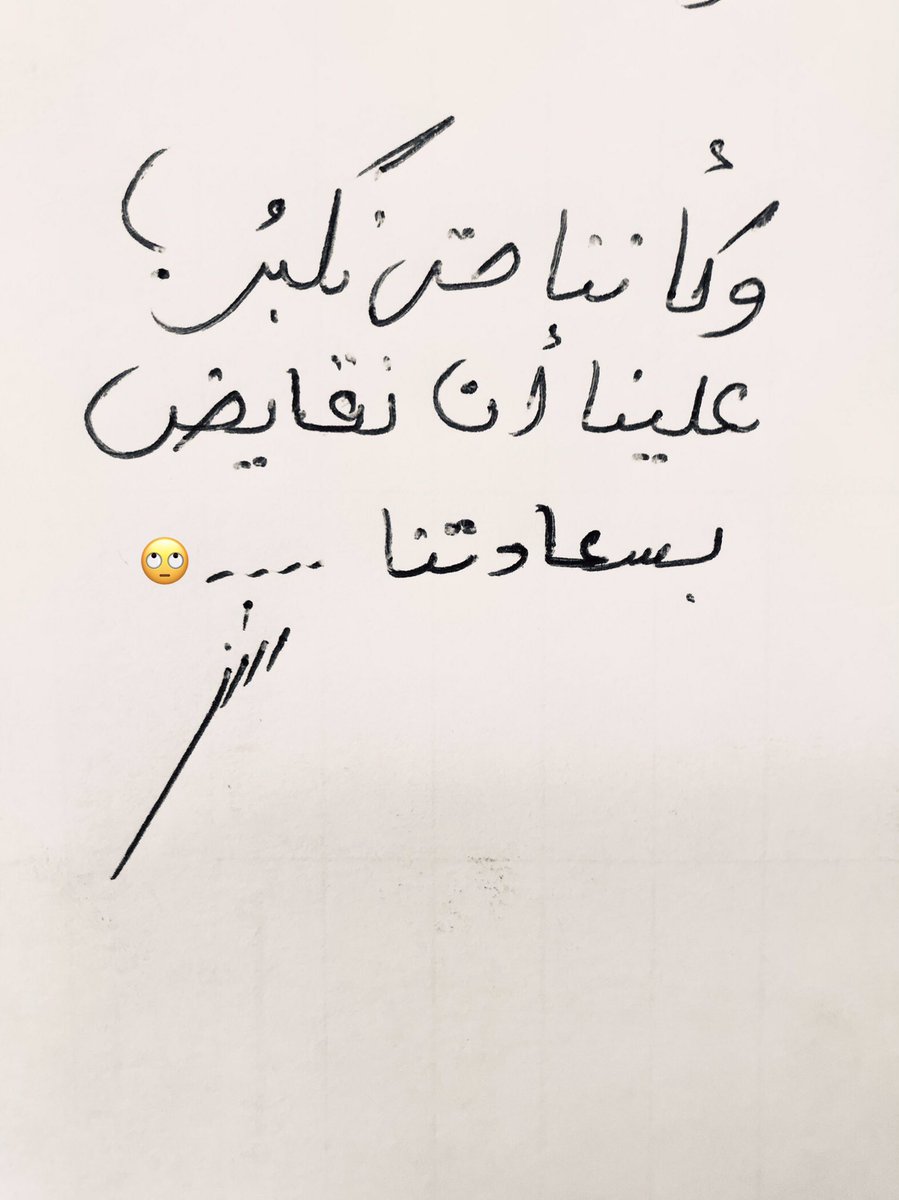 وكأننا حتى نكبُر ؟
علينا أن نقايض
بسعادتنا ---- 🙄